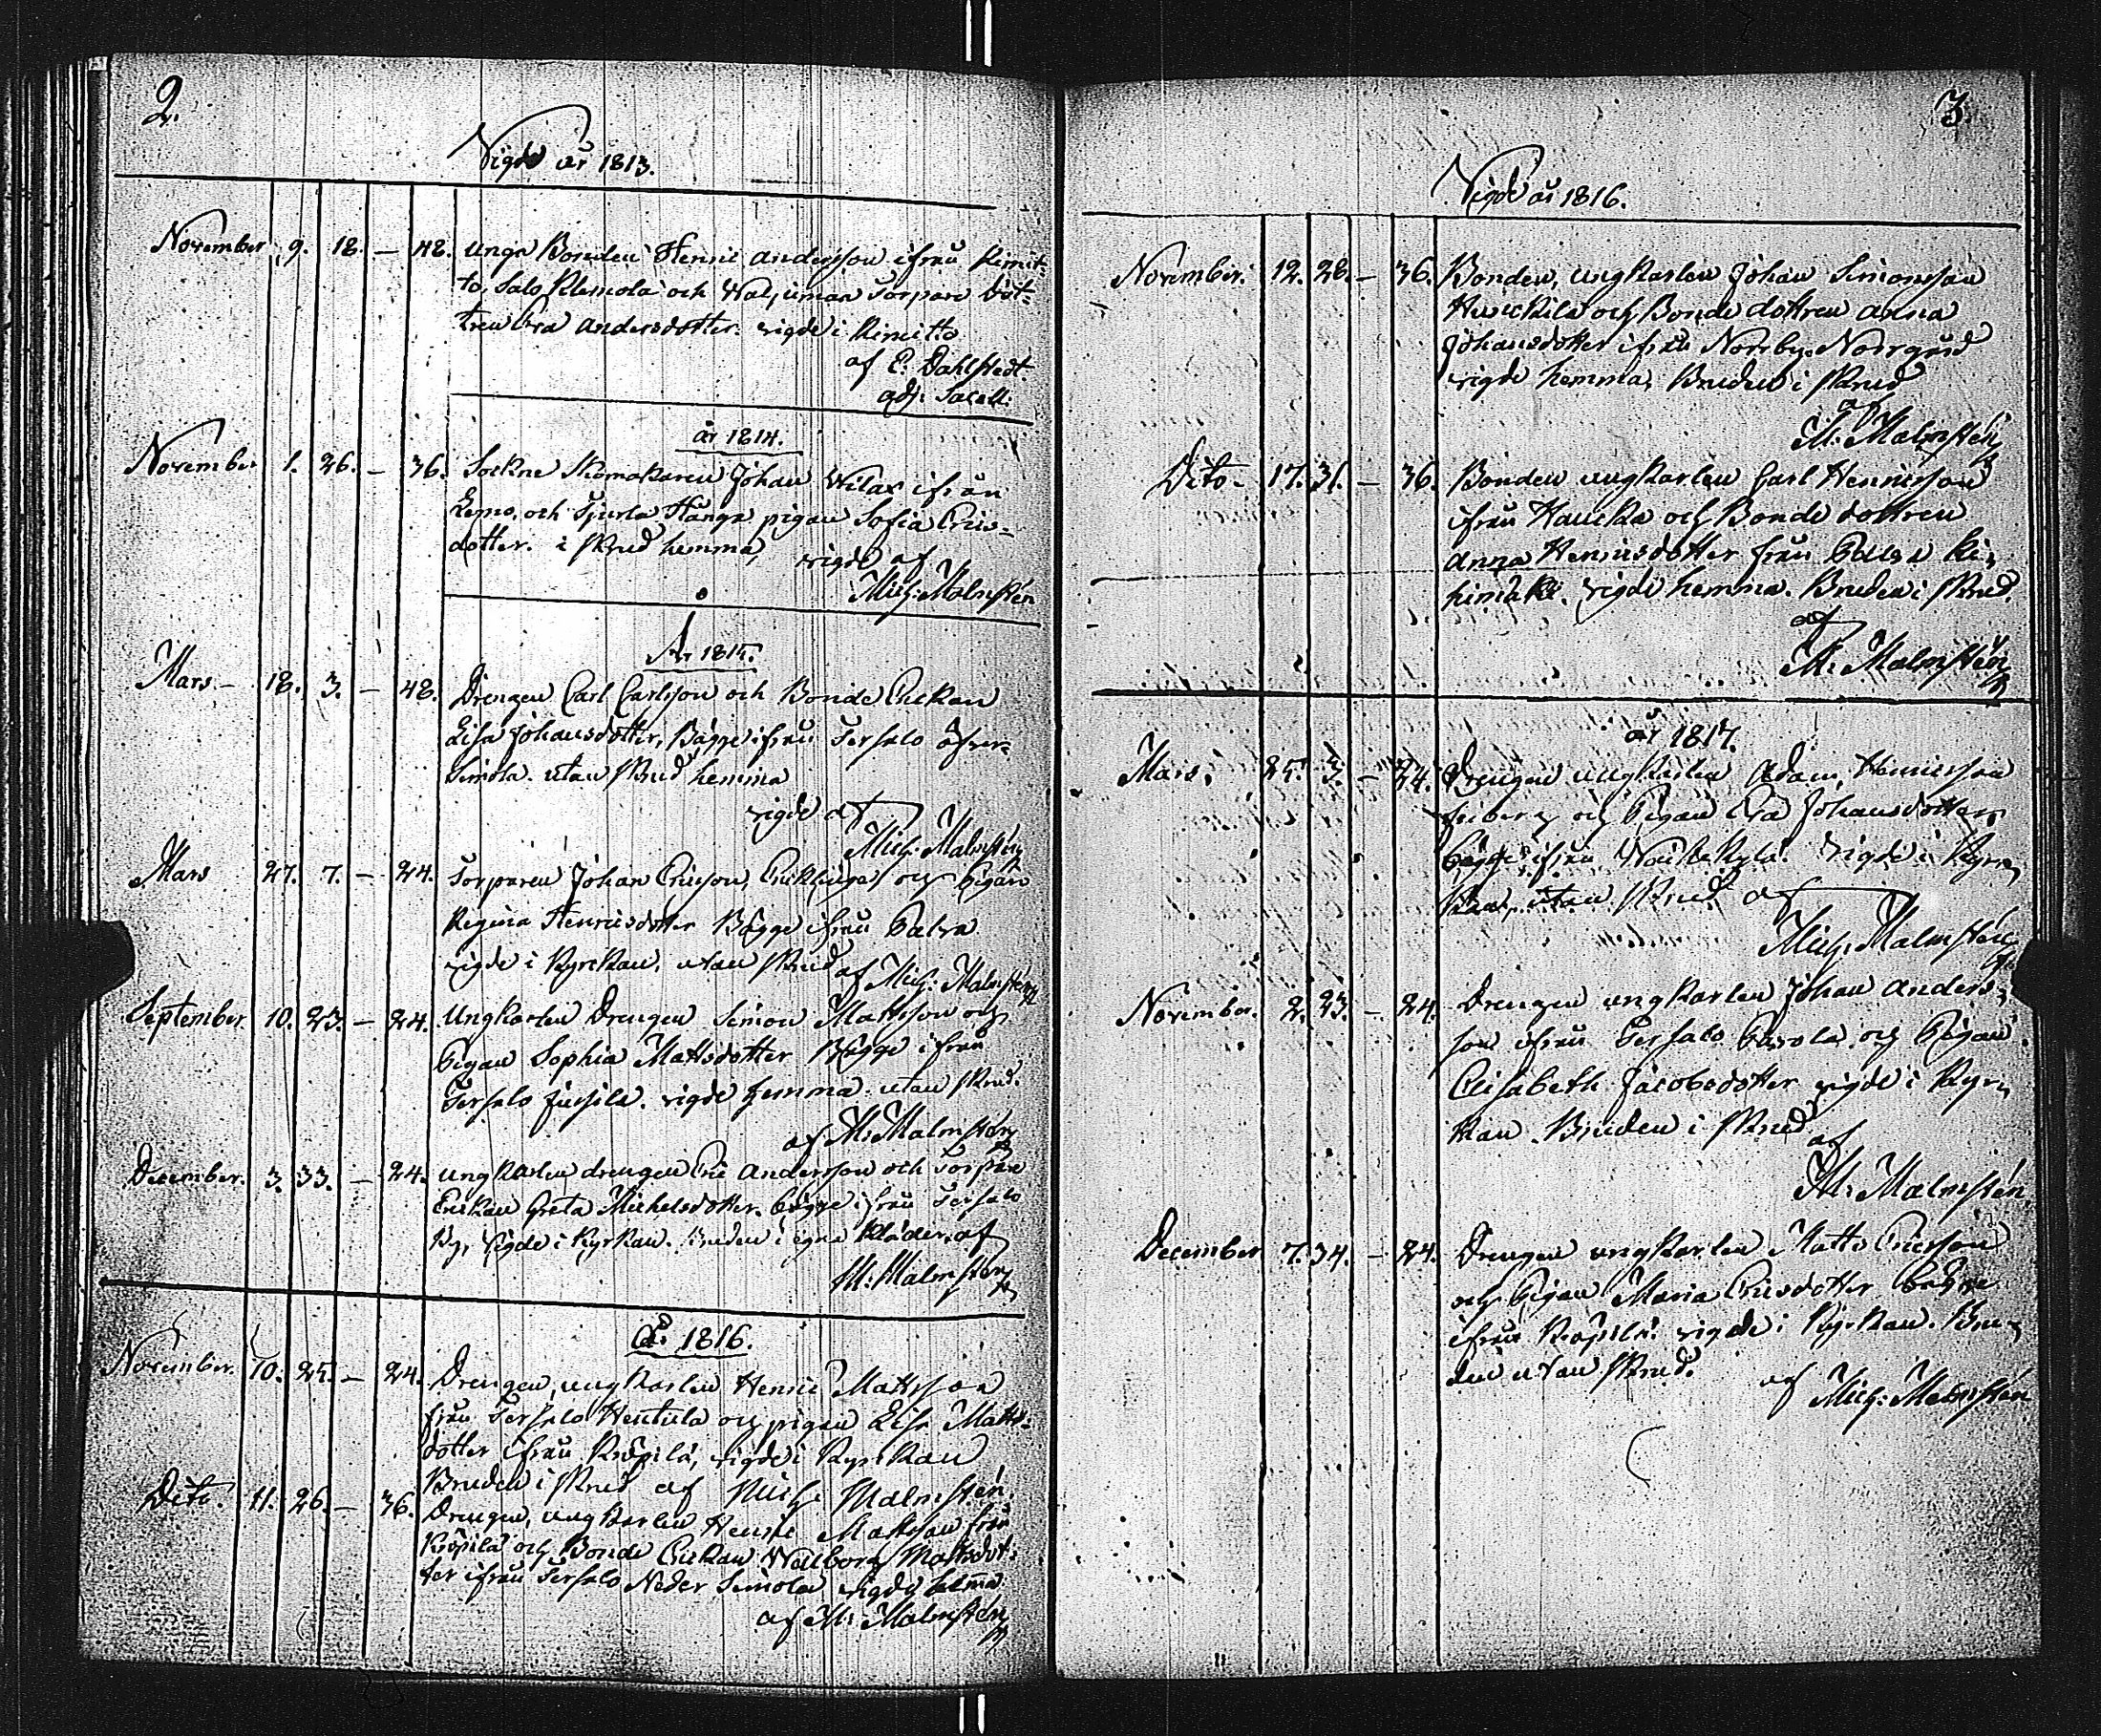 2.
Vigde år 1813.
November 9. 18. — 48. unga Bonden Henric Andersson ifrån Kimit-
to, Salo Klemola och torpare Dot-
tren Eva Andersdotter. vigde i Kimitto
af E. Dahlstedt.
adj. Sacell.
år 1814.
November 1. 26. — 36. Sockne Skomakaren Johan Wilax ifrån
Lemo, och Stånga pigan Sofia Erics-
dotter. i Skrud hemma, vigde af
Mich: Malmstén
År 1815.
Mars — 18. 3. — 48. Drengen Carl Carlsson och Bonde Enckan
Lisa Johansdotter, Bägge ifrån Tersalo öfver-
Simola. utan Skrud hemma
vigde af
Mich: Malmstén
Mars 27. 7. — 24. Torparen Johan Ericson, Enkling och Pigan
Regina Henricsdotter Bägge ifrån Palva
vigde i Kyrckan, utan Skrud af Mich: Malmstén
September 10. 23. — 24. Ungkarlen Drengen Simon Mattsson och
Pigan Sophia Mattsdotter Bägge ifrån
Tersalo Jussila. vigde hemma utan Skrud.
af M: Malmstén
December. 3. 33. — 24. ungkarlen drengen Eric Andersson och Torpare
Enckan Greta Michelsdotter. bägge ifrån Tersalo
By, vigde i Kyrkan. Bruden i egna kläder, af
M: Malmstén
År 1816.
November. 10. 25. — 24. Drengen, ungkarlen Henric Mattsson
från Tersalo Hentula och pigan Lisa Matts-
dotter ifrån Kröpilä, vigde i Kyrkan
Bruden i Skrud af Mich: Malmstén.
Dito. 11. 26. — 36. Drengen, ungkarlen Henric Mattsson från
Kröpilä och Bonde Enckan Walborg Mattsdot-
ter ifrån Tersalo Neder Simola vigde hemma
af M: Malmstén
3.
Vigde år 1816.
November. 12. 28. — 36. Bonden, ungkarlen Johan Simonsson
och Bonde dottren Anna
Johansdotter ifrån Norrby Norrgård
vigde hemma, Bruden i Skrud
af
M: Malmstén
Dito. 17. 31. — 36. Bonden ungkarlen Carl Henricsson
ifrån och Bonde dottren
Anna Henricsdotter från Palva Ri-
himäki. vigde hemma. Bruden i Skrud.
af
M: Malmstén
år 1817.
Mars. 25. 3. — 24. Drengen ungkarlen Adam Henricsson
Friberg och Pigan Eva Johansdotter
bägge ifrån vigde i Kyrc-
kan, utan Skrud af
Mich: Malmstén
November. 2. 23. — 24. Drengen ungkarlen Johan Anders-
son ifrån Tersalo Pavola och Pigan
Elisabeth Jacobsdotter vigde i Kyr-
kan. Bruden i Skrud
af
M: Malmstén
December 7. 34. — 24. Drengen ungkarlen Matts Ericsson
och Pigan Maria Ericsdotter bägge
ifrån Kröpilä. vigde i Kyrkan. Bru-
den utan Skrud.
af Mich: Malmstén